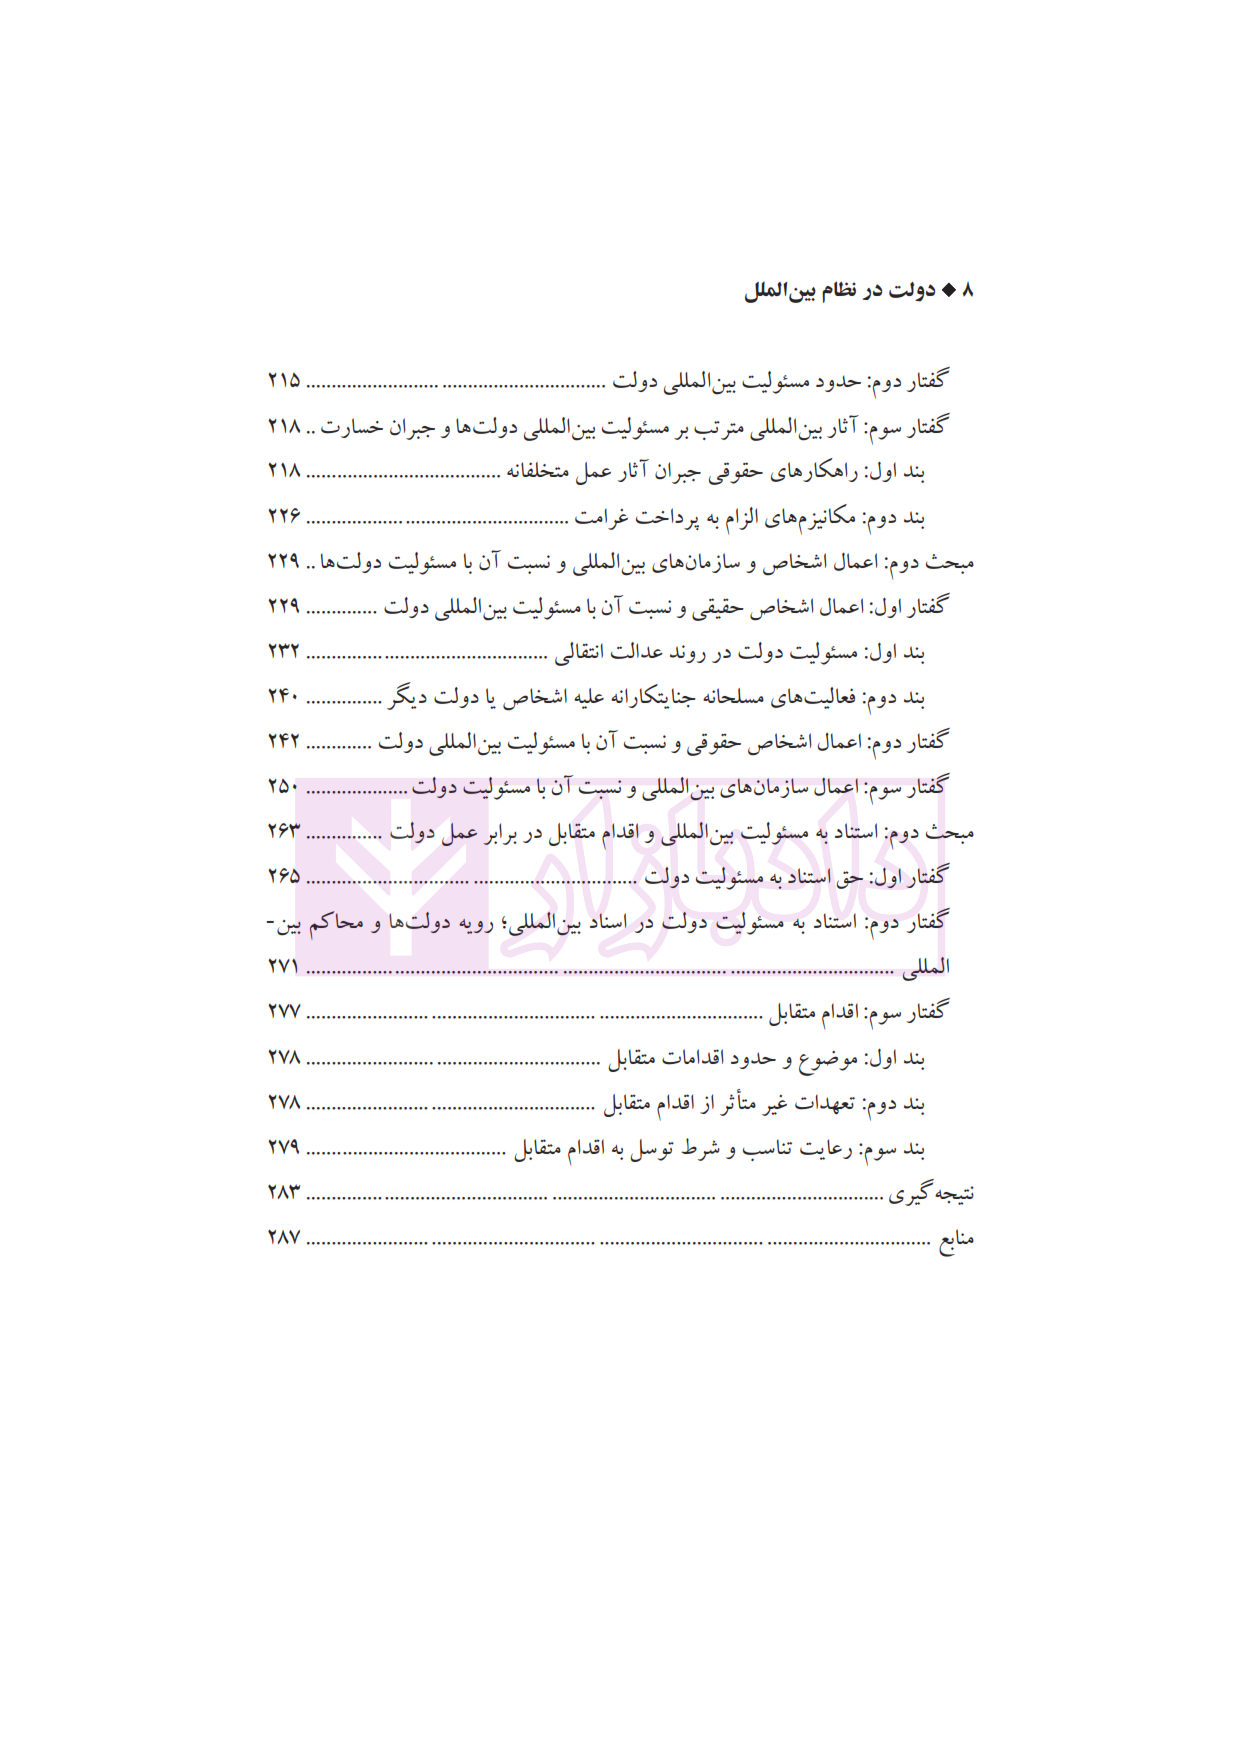 ۸ ◆ دولت در نظام بین‌الملل
گفتار دوم: حدود مسئولیت بین‌المللی دولت ........................................................ ۲۱۵
گفتار سوم: آثار بین‌المللی مترتب بر مسئولیت بین‌المللی دولت‌ها و جبران خسارت .. ۲۱۸
بند اول: راهکارهای حقوقی جبران آثار عمل متخلفانه ...................................... ۲۱۸
بند دوم: مکانیزم‌های الزام به پرداخت غرامت .................................................. ۲۲۶
مبحث دوم: اعمال اشخاص و سازمان‌های بین‌المللی و نسبت آن با مسئولیت دولت‌ها .. ۲۲۹
گفتار اول: اعمال اشخاص حقیقی و نسبت آن با مسئولیت بین‌المللی دولت .............. ۲۲۹
بند اول: مسئولیت دولت در روند عدالت انتقالی ............................................... ۲۳۲
بند دوم: فعالیت‌های مسلحانه جنایتکارانه علیه اشخاص یا دولت دیگر ............... ۲۴۰
گفتار دوم: اعمال اشخاص حقوقی و نسبت آن با مسئولیت بین‌المللی دولت ............. ۲۴۲
گفتار سوم: اعمال سازمان‌های بین‌المللی و نسبت آن با مسئولیت دولت .................... ۲۵۰
مبحث دوم: استناد به مسئولیت بین‌المللی و اقدام متقابل در برابر عمل دولت ............... ۲۶۳
گفتار اول: حق استناد به مسئولیت دولت ................................................................ ۲۶۵
گفتار دوم: استناد به مسئولیت دولت در اسناد بین‌المللی؛ رویه دولت‌ها و محاکم بین-
المللی ................................................................................................................ ۲۷۱
گفتار سوم: اقدام متقابل ........................................................................................ ۲۷۷
بند اول: موضوع و حدود اقدامات متقابل ......................................................... ۲۷۸
بند دوم: تعهدات غیر متأثر از اقدام متقابل ........................................................ ۲۷۸
بند سوم: رعایت تناسب و شرط توسل به اقدام متقابل ....................................... ۲۷۹
نتیجه‌گیری ............................................................................................................... ۲۸۳
منابع ........................................................................................................................ ۲۸۷
دادبازار